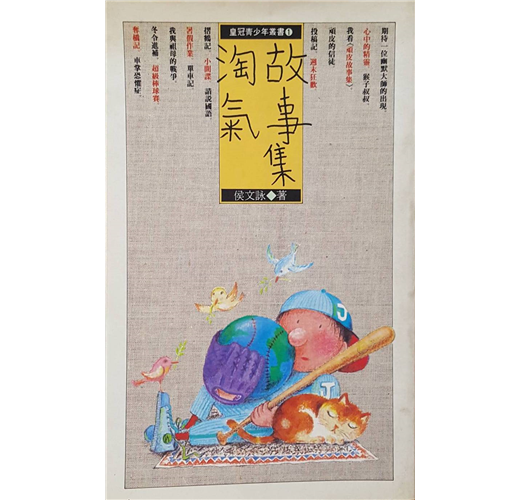 皇冠青少年叢書❶
淘氣
故事集
侯文詠◆著
期待一位幽默大師的出現.
心中的精靈. 猴子叔叔.
我看《頑皮故事集》
頑皮的信徒
投稿記. 週末狂歡.
摺鶴記. 小間諜. 請說國語.
暑假作業. 單車記.
我與祖母的戰爭.
冬令進補. 超級棒球賽.
奪橋記. 車掌恐懼症.
J
J